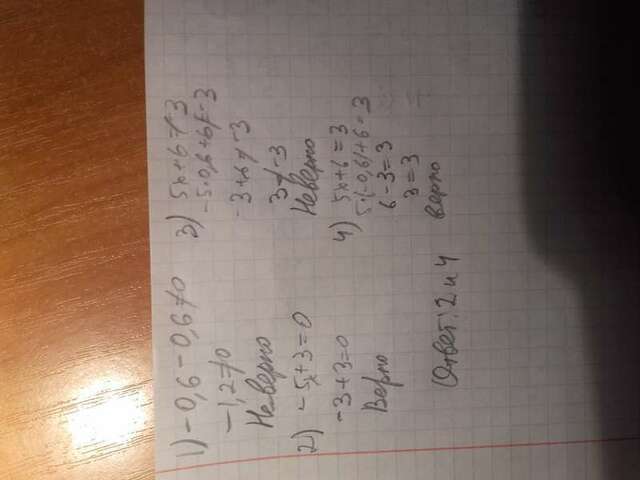 1) -0,6 - 0,6 ≠ 0
-1,2 ≠ 0
Неверно
2) -5x+3=0
-3+3=0
Верно
3) 5x+6 ≠ 3
-5·0,6+6 ≠ -3
-3+6 ≠ -3
3 ≠ -3
Неверно
4) 5x+6=3
5·(-0,6)+6=3
6-3=3
3=3
верно
Ответ: 2 и 4